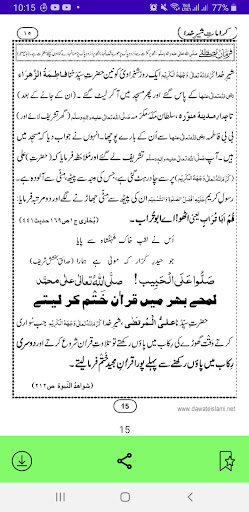 10:15 77%
١٥ كراماتِ شیرِ خدا
شیرِ خدا کَرَّمَ اللهُ تَعَالٰی وَجْهَهُ الْكَرِیْم ایک روز شہزادیِ کونین حضرتِ سیِّدَتُنا فاطمۃُ الزَّہراء
رضی اللہ تعالٰی عنہا کے پاس گئے اور پھر مسجد میں آ کر لیٹ گئے۔ (ان کے جانے کے بعد)
تاجدارِ مدینۂ منوَّرہ، سلطانِ مکّۂ مکرَّمہ صلی اللہ تعالٰی علیہ واٰلہ وسلم (گھر تشریف لائے اور)
بی بی فاطمہ رضی اللہ تعالٰی عنہا سے اُن کے بارے میں پوچھا۔ انہوں نے جواب دیا کہ مسجد میں
ہیں۔ آپ صلی اللہ تعالٰی علیہ واٰلہ وسلم تشریف لے گئے اور مُلاحَظہ فرمایا کہ (حضرتِ) علی
رسولِ کریم صلی اللہ تعالٰی علیہ واٰلہ وسلم اُن کی پیٹھ سے مٹی جھاڑنے لگے اور دو مرتبہ فرمایا:
قُمْ اَبَا تُرَاب یعنی اٹھو! اے ابو تُراب۔ (بُخاری ج١ ص١٦٩ حدیث ٤٤١)
اُس نے لقبِ خاک شہنشاہ سے پایا
جو حیدرِ کرّار کہ مولیٰ ہے ہمارا
صَلُّوْا عَلَی الْحَبِیْب! صلَّی اللهُ تعالٰی علٰی محمَّد
لمحے بھر میں قرآن ختم کر لیتے
حضرتِ سیِّدُنا علیُّ الْمُرتَضٰی، شیرِ خدا کَرَّمَ اللهُ تَعَالٰی وَجْهَهُ الْكَرِیْم جب سواری
کرتے وقت گھوڑے کی رِکاب میں پاؤں رکھتے تو تلاوتِ قرآن شروع کرتے اور دوسری
رِکاب میں پاؤں رکھنے سے پہلے پورا قرآنِ مجید ختم فرما لیتے۔
(شواہدُ النُّبوۃ ص٢١٢)
15
www.dawateislami.net
15